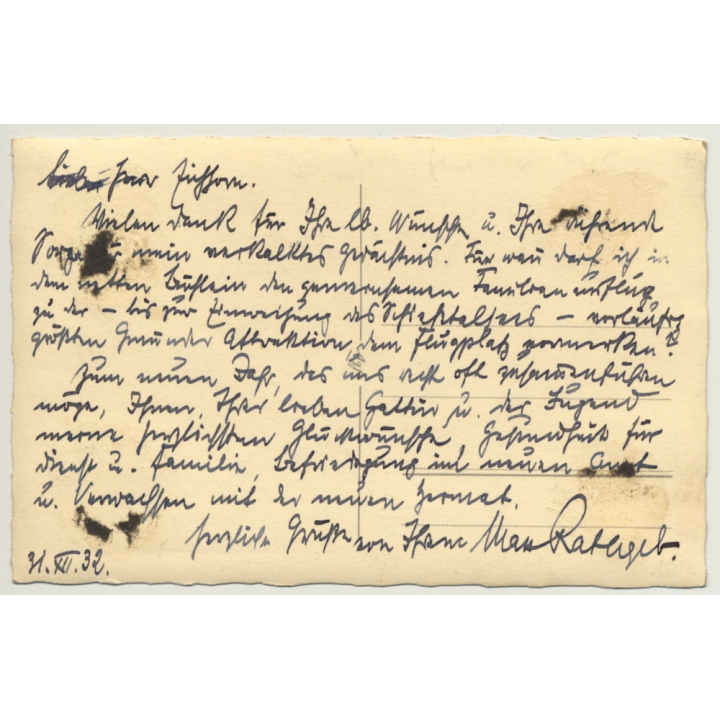 Lieber Herr Eichhorn.
Vielen Dank für Ihre lb. Wünsche u. Ihre
Sorge für mein verkalktes Gedächtnis. Für wann darf ich in
dem netten Büchlein den gemeinsamen Familienausflug
zu der – bis zur Einweihung des Schießtales – vorläufig
größten Gmünder Attraktion, dem Flugplatz vormerken?
Zum neuen Jahr, das uns recht oft zusammenführen
möge, Ihnen, Ihrer lieben Gattin u. der Jugend
meine herzlichsten Glückwünsche, Gesundheit für
Dienst u. Familie, Befriedigung im neuen Amt
u. Verwachsen mit der neuen Heimat.
Herzliche Grüße von Ihrem Max Rathgeb.
31. XII. 32.